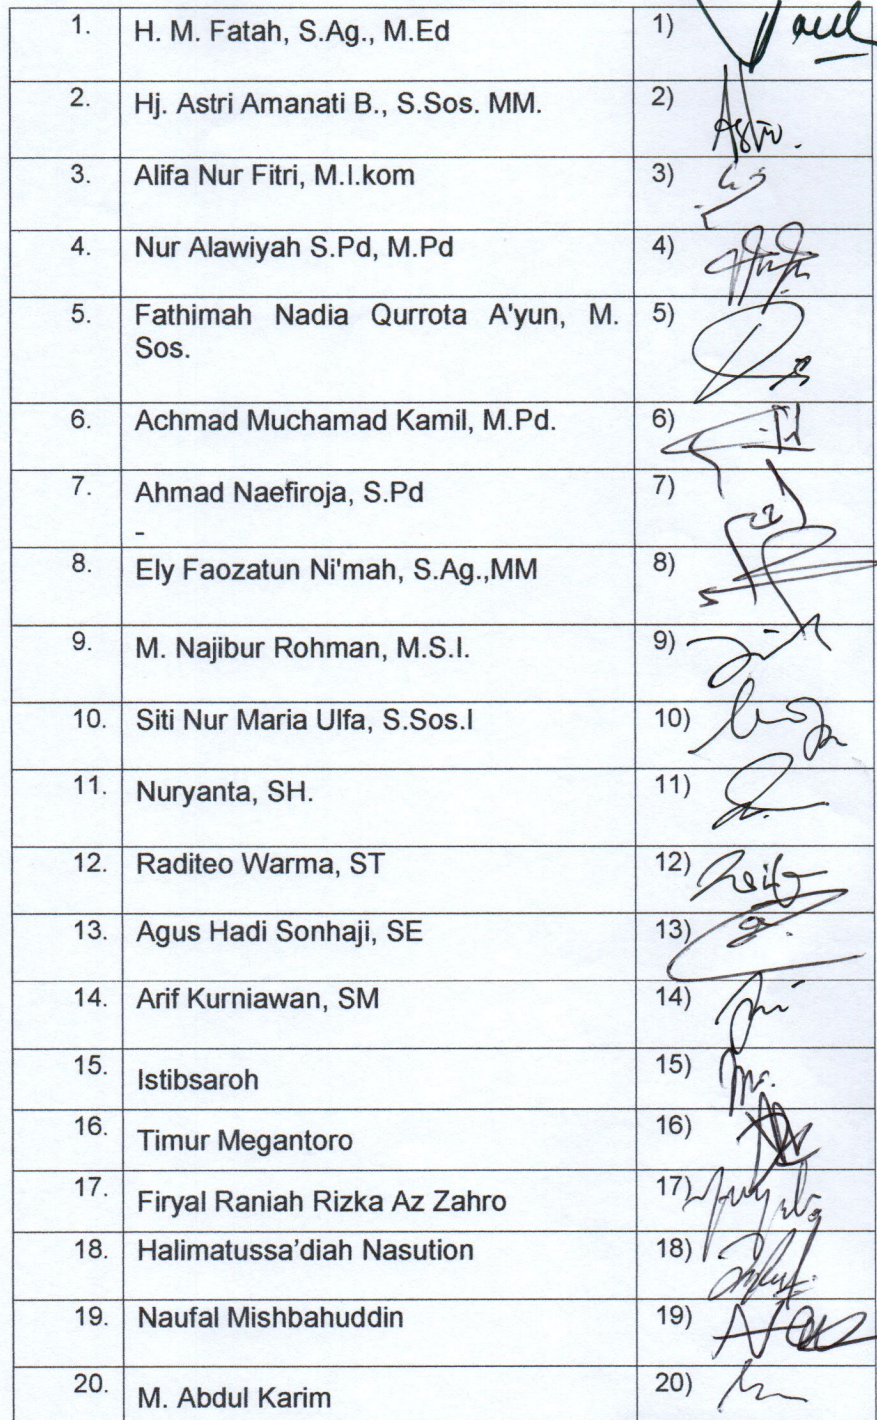 1. H. M. Fatah, S.Ag., M.Ed 1)
2. Hj. Astri Amanati B., S.Sos. MM. 2)
3. Alifa Nur Fitri, M.I.kom 3)
4. Nur Alawiyah S.Pd, M.Pd 4)
5. Fathimah Nadia Qurrota A'yun, M. 5)
Sos.
6. Achmad Muchamad Kamil, M.Pd. 6)
7. Ahmad Naefiroja, S.Pd 7)
-
8. Ely Faozatun Ni'mah, S.Ag.,MM 8)
9. M. Najibur Rohman, M.S.I. 9)
10. Siti Nur Maria Ulfa, S.Sos.I 10)
11. Nuryanta, SH. 11)
12. Raditeo Warma, ST 12)
13. Agus Hadi Sonhaji, SE 13)
14. Arif Kurniawan, SM 14)
15. Istibsaroh 15)
16. Timur Megantoro 16)
17. Firyal Raniah Rizka Az Zahro 17)
18. Halimatussa’diah Nasution 18)
19. Naufal Mishbahuddin 19)
20. M. Abdul Karim 20)